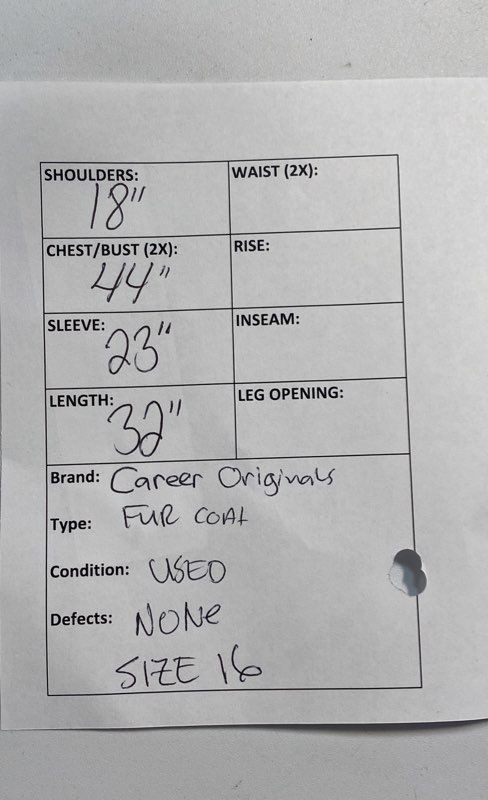 SHOULDERS: WAIST (2X):
18"
CHEST/BUST (2X): RISE:
44"
SLEEVE: INSEAM:
23"
LENGTH: LEG OPENING:
32"
Brand: Career Originals
Type: FUR COAT
Condition: USED
Defects: NONe
SIZE 16